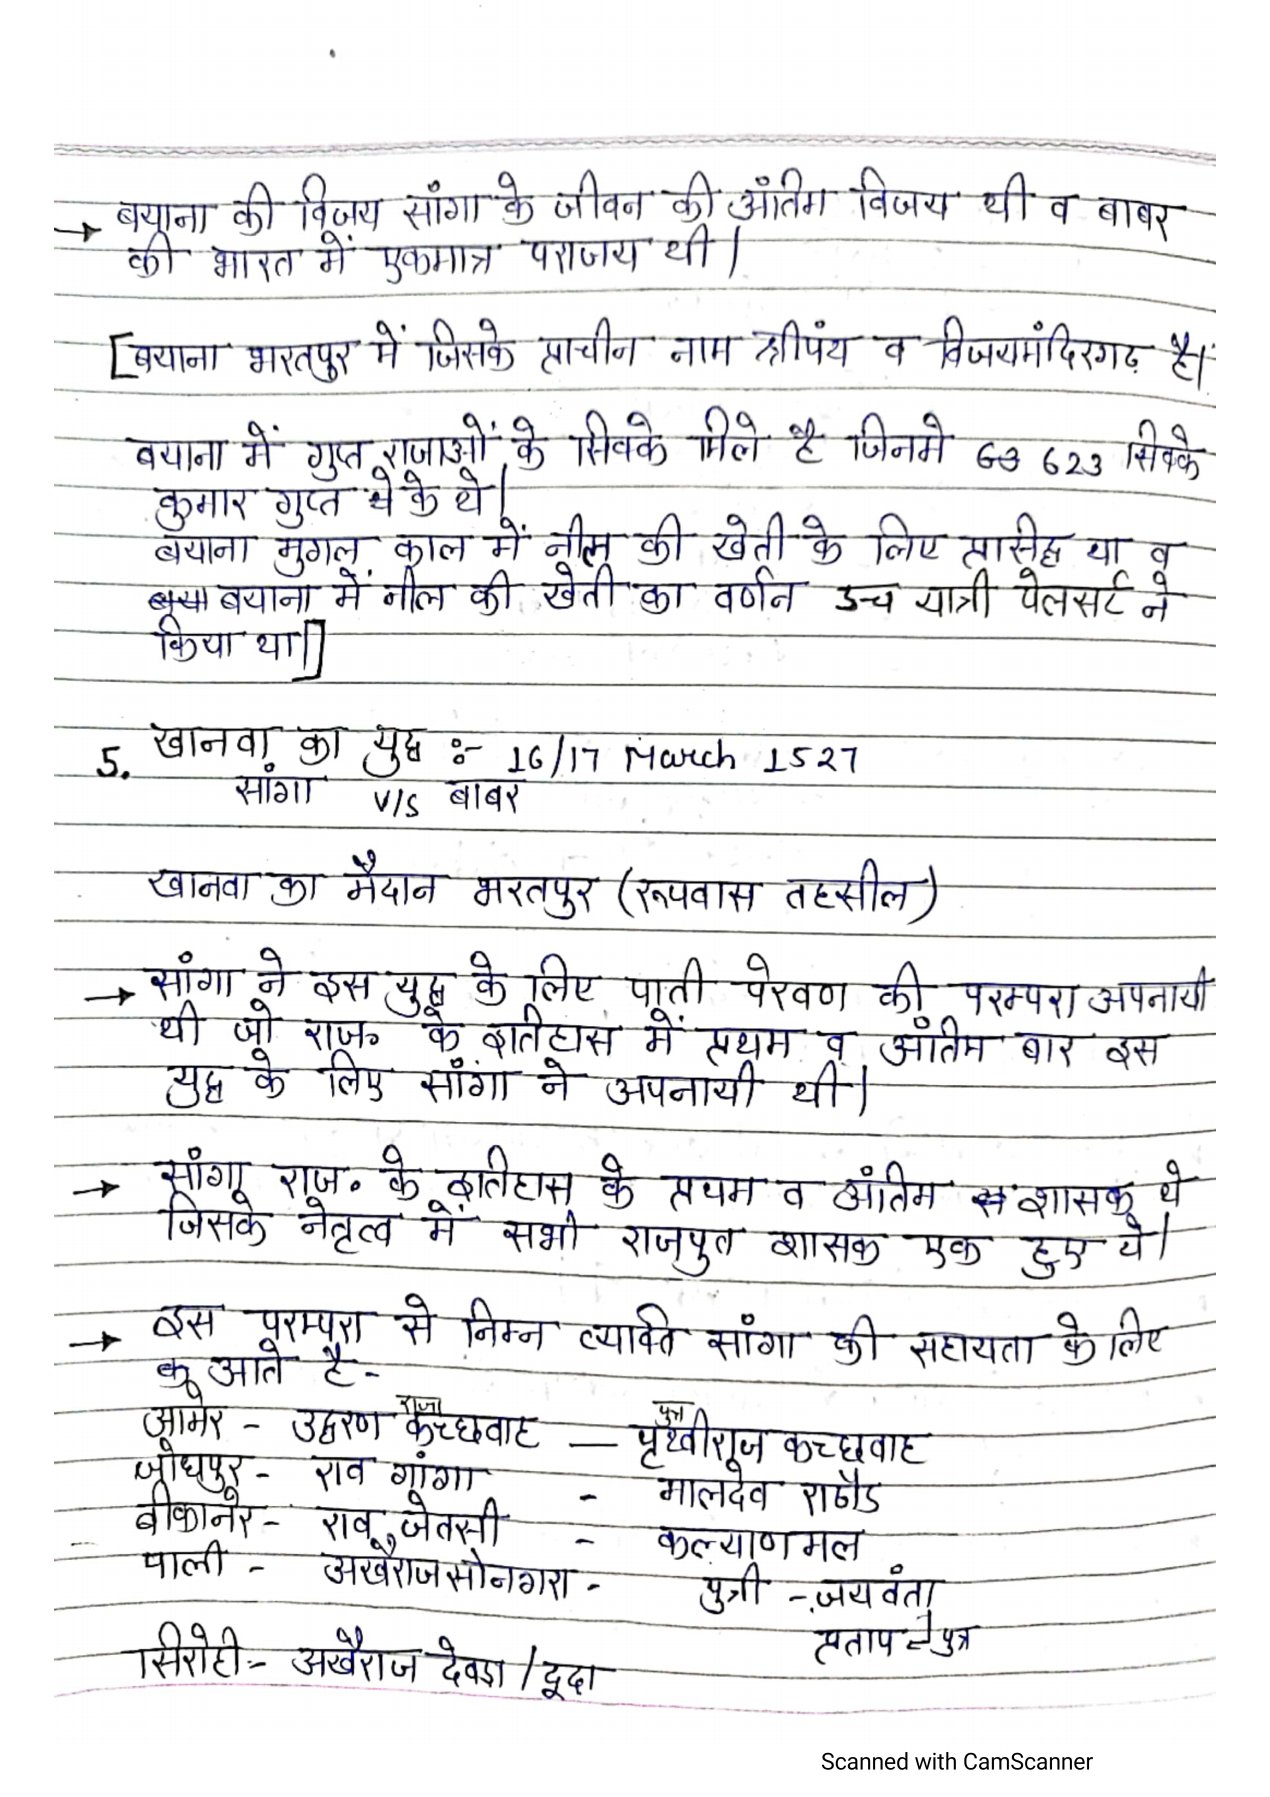 → बयाना की विजय सांगा के जीवन की अंतिम विजय थी व बाबर
की भारत में एकमात्र पराजय थी।
[बयाना भरतपुर में जिसके प्राचीन नाम श्रीपंथ व विजयमंदिरगढ़ है।
बयाना में गुप्त राजाओं के सिक्के मिले है जिनमे 623 सिक्के
कुमार गुप्त के थे।
बयाना मुगल काल में नील की खेती के लिए प्रसिद्ध था व
बयाना में नील की खेती का वर्णन डच यात्री पेलसर्ट ने
किया था।]
5. खानवा का युद्ध :- 16/17 March 1527
सांगा V/S बाबर
खानवा का मैदान भरतपुर (रूपवास तहसील)
→ सांगा ने इस युद्ध के लिए पाती पेरवण की परम्परा अपनायी
थी जो राज॰ के इतिहास में प्रथम व अंतिम बार इस
युद्ध के लिए सांगा ने अपनायी थी।
→ सांगा राज. के इतिहास के प्रथम व अंतिम शासक थे
जिसके नेतृत्व में सभी राजपुत शासक एक हुए थे।
→ इस परम्परा से निम्न व्यक्ति सांगा की सहायता के लिए
आते है -
राजा पुत्र
आमेर - उद्वरण कच्छवाह — पृथ्वीराज कच्छवाह
जोधपुर - राव गांगा - मालदेव राठौड
बीकानेर - राव जेतसी - कल्याणमल
पाली - अखैराज सोनगरा - पुत्री - जयवंता
प्रताप पुत्र
सिरोही:- अखैराज देवडा / दूदा
Scanned with CamScanner